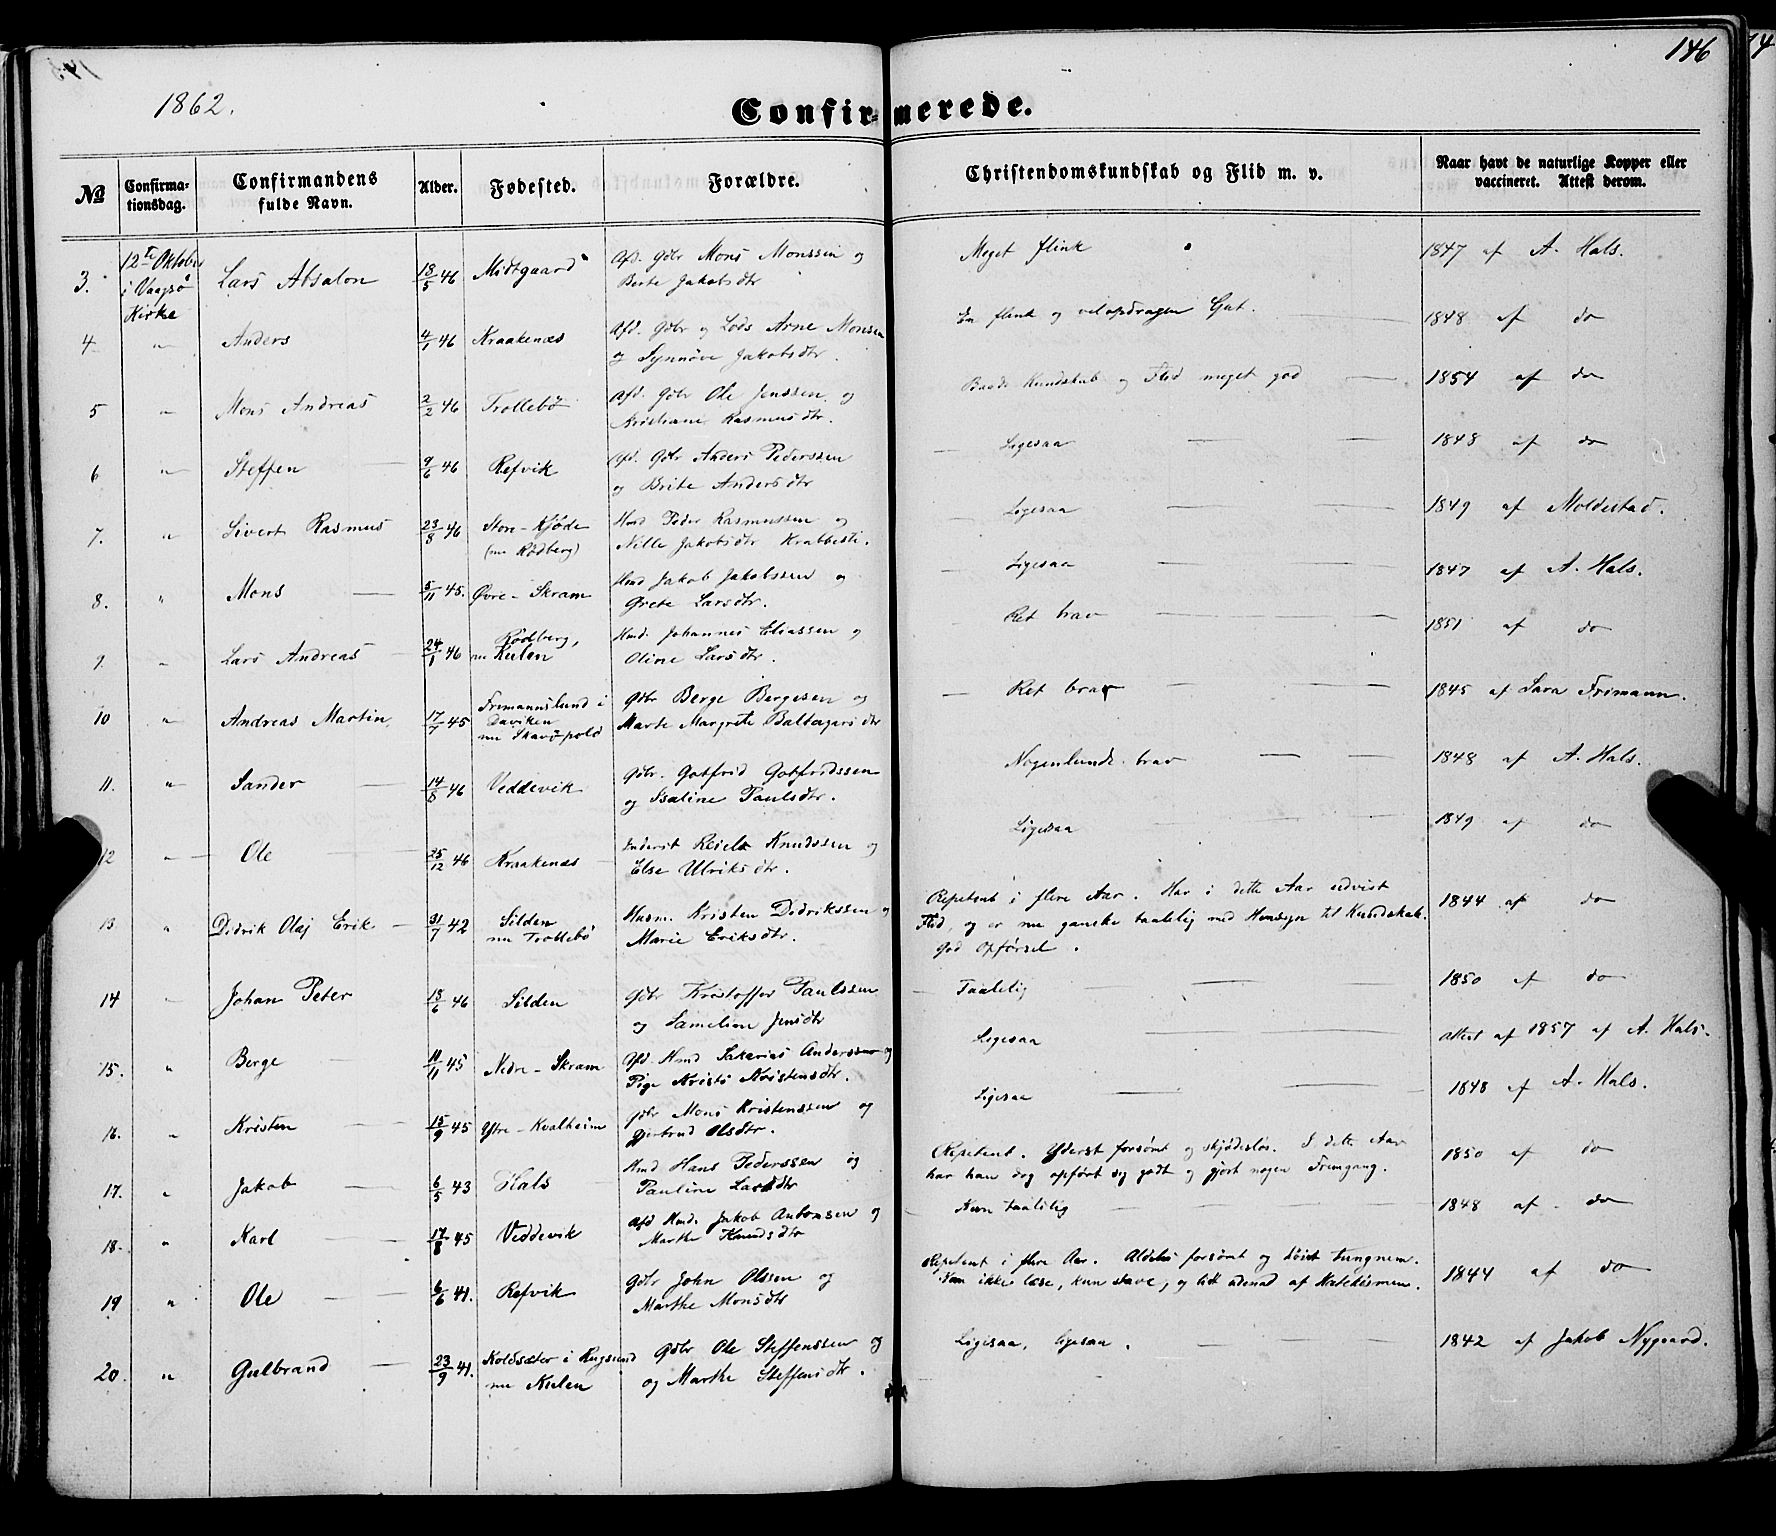 146
1862.
Confirmerede.
№ Confirmationsdag. Confirmandens fulde Navn. Alder. Fødested. Forældre. Christendomskundskab og Flid m. v. Naar havt de naturlige Kopper eller vaccineret. Attest derom.
3. 12te Oktober i Vaagsø Kirke Lars Absalon 18/5 46 Midtgaard Afd. Gdbr Mons Monssen og Berte Jakobsdtr Meget flink 1847 af A. Hals.
4 " Anders 4/1 46 Kraakenæs Afd. Gdbr og Lods Arne Monsen og Synnöve Jakobsdtr. En flink og velopdragen Gut. 1848 af do
5 " Mons Andreas 2/2 46 Trollebø Afd. Gdbr Ole Jenssen og Kristiane Rasmusdtr. Baade Kundskab og Flid meget god 1854 af do
6 " Steffen 9/6 46 Refvik Afd. Gdbr Anders Pederssen og Brite Andersdtr Ligesaa 1848 af do
7. " Sivert Rasmus 23/8 46 Store-Kjøde (nu Rødberg) Hmd Peder Rasmussen og Nille Jakobsdtr Krabbesti. Ligesaa 1849 af Moldestad.
8. " Mons 5/11 45. Øvre-Skram Hmd Jakob Jakobssen og Grete Larsdtr. Ligesaa 1847 af A. Hals.
9. " Lars Andreas 24/1 46 Rødberg, nu Kulen Hmd. Johannes Eliassen og Oline Larsdtr. Ret brav 1851 af do
10 " Andreas Martin 17/7 45 Frimannslund i Daviken nu Skavøpold Gdbr Berge Bergesen og Marte Margrete Baltazarsdtr Ret brav 1845 af Sara Frimann.
11. " Sander 14/8 46 Veddevik Gdbr. Gotfrid Gotfridssen og Isaline Paulsdtr. Nogenlunde brav 1848 af A. Hals.
12 " Ole 25/12 46 Kraakenæs Inderst Knudssen og Else Ulriksdtr. Ligesaa 1849 af do
13 " Didrik Olaj Erik 31/7 42 Silden nu Trollebø Husm. Kristen Didrikssen og Marie Eriksdtr. Repetent i flere Aar. Har i dette Aar udvist Flid, og er nu ganske taalelig med Hensyn til Kundskab. God Opførsel. 1844 af do
14 " Johan Peter 18/6 46 Silden Gdbr Kristoffer Paulssen og Jensdtr Taalelig 1850 af do
15. " Berge 11/11 45 Nedre-Skram Afd. Hmd Sakarias Anderssen og Pige Kristi Kristensdtr. Ligesaa Attest af 1857 af A. Hals.
16. " Kristen 15/9 45 Ytre-Kvalheim Gdbr Mons Kristenssen og Gjertrud Olsdtr. Ligesaa 1848 af A. Hals.
17. " Jakob 6/5 43 Hals Hmd Hans Pederssen og Pauline Larsdtr Repetent. Yderst forsømt og skjødesløs. I dette Aar har han dog opført sig godt og gjort nogen Fremgang. 1850 af do
18. " Karl 17/8 45 Veddevik Afd Hmd. Jakob Antonsen og Marthe Knudsdtr Kun taalelig 1848 af do
19 " Ole 6/6 41. Refvik Gdbr John Olssen og Marthe Monsdtr Repetent i flere Aar. Aldeles forsømt og høist tungnem. Kan ikke læse, kun stave, og lidt udenad af Katekismen. 1844 af do
20. " Gulbrand 23/9 41. Koldsæter i Rugsund nu Kulen Gdbr Ole Steffenssen og Marthe Steffensdtr. Ligesaa, ligesaa. 1842 af Jakob Nygaard.